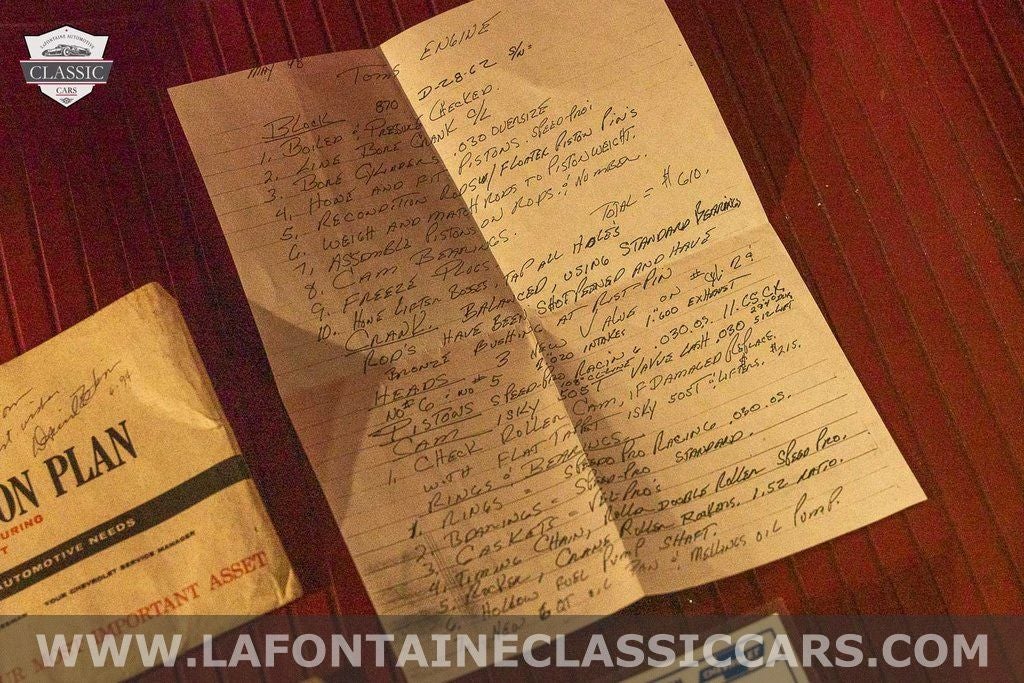 LAFONTAINE AUTOMOTIVE
CLASSIC
CARS
MAY 98 TOMS ENGINE
BLOCK 870 D-28-62 S/N=
1. BOILED & PRESSURE CHECKED.
2. LINE BORE CRANK O/L
3. BORE CYLINDERS .030 OVERSIZE
4. HONE AND FIT PISTONS. SPEED-PRO.
5. RECONDITION RODS W/ FLOATER PISTON PINS
6. WEIGH AND MATCH RODS TO PISTON WEIGHT.
7. ASSEMBLE PISTONS ON RODS. & NUMBER.
8. CAM BEARINGS.
9. FREEZE PLUGS
10. HONE LIFTER BORES, TAP ALL HOLES TOTAL = $610.
CRANK. BALANCED, USING STANDARD BEARINGS
ROD'S HAVE BEEN SHOTPEENED AND HAVE
BRONZE BUSHING AT RIST PIN
HEADS 3 NEW VALVE ON #
NO# 6 : NO# 5 2.020 INTAKES 1.600 EXHAUST
PISTONS SPEED-PRO RACING .030.OS. 11.65
CAM ISKY 505T VALVE LASH .030
1. CHECK ROLLER CAM, IF DAMAGED REPLACE.
WITH FLAT TAPET ISKY 505T & LIFTERS. $215.
RINGS & BEARINGS
1. RINGS = SPEED PRO RACING .030.OS.
2. BEARINGS = SPEED-PRO STANDARD.
3. GASKETS = FEL-PRO'S
4. TIMING CHAIN, ROLLO DOUBLE ROLLER SPEED PRO.
5. ROCKER, CRANE ROLLER ROCKERS. 1.52 RATIO.
6. HOLLOW FUEL PUMP SHAFT.
NEW 6 QT OIL PAN & MELLINGS OIL PUMP.
6-94
ON PLAN
URING
T
AUTOMOTIVE NEEDS
YOUR CHEVROLET SERVICE MANAGER
IMPORTANT ASSET
WWW.LAFONTAINECLASSICCARS.COM